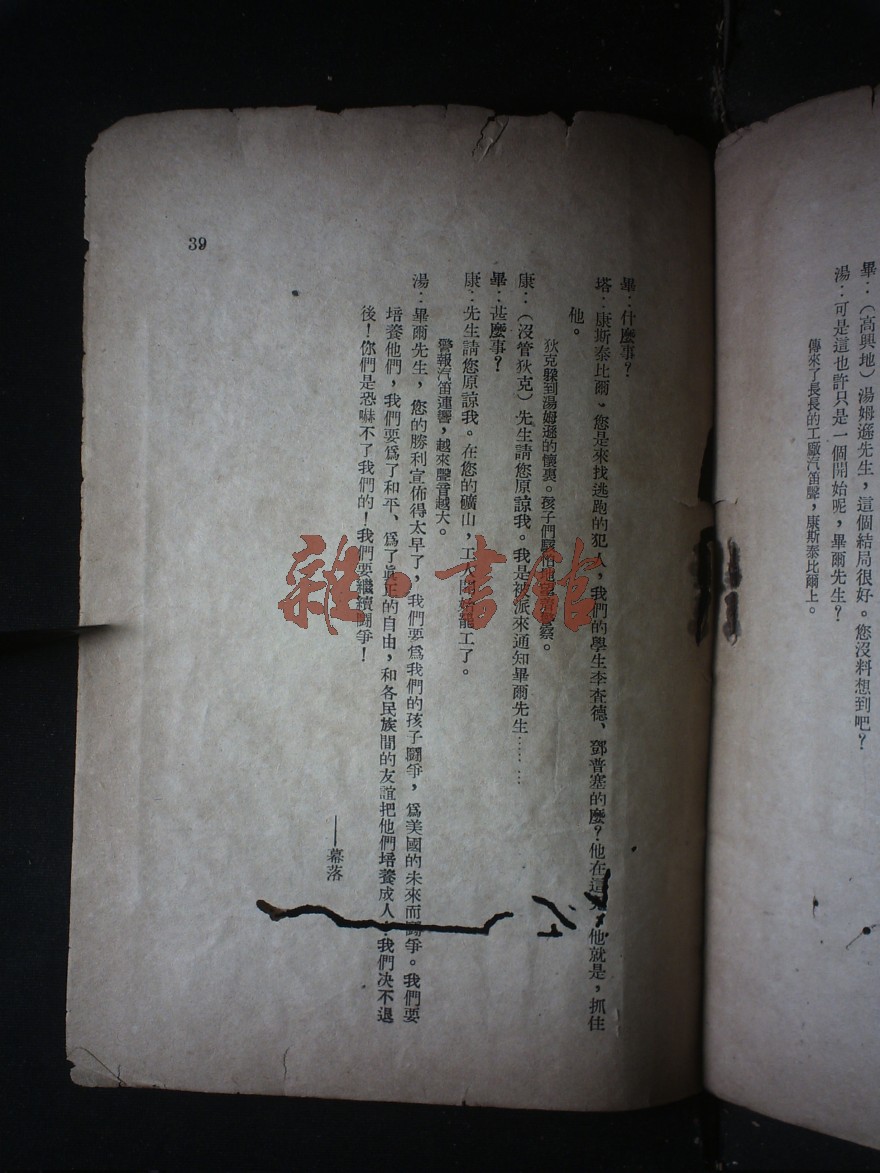 畢：（高興地）湯姆遜先生，這個結局很好。您沒料想到吧？
湯：可是這也許只是一個開始呢，畢爾先生？
傳來了長長的工廠汽笛聲，康斯泰比爾上。
畢：什麼事？
塔：康斯泰比爾，您是來找逃跑的犯人，我們的學生李查德、鄧普塞的麼？他在這 他就是，抓住
他。
狄克躲到湯姆遜的懷裏。孩子們 察。
康：（沒管狄克）先生請您原諒我。我是被派來通知畢爾先生……
畢：甚麼事？
康：先生請您原諒我。在您的礦山，工人開始罷工了。
警報汽笛連響，越來聲音越大。
湯：畢爾先生，您的勝利宣佈得太早了，我們要爲我們的孩子鬪爭，爲美國的未來而鬪爭。我們要
培養他們，我們要爲了和平、爲了眞正的自由，和各民族間的友誼把他們培養成人！我們决不退
後！你們是恐嚇不了我們的！我們要繼續鬪爭！
——幕落
39
雜·書館